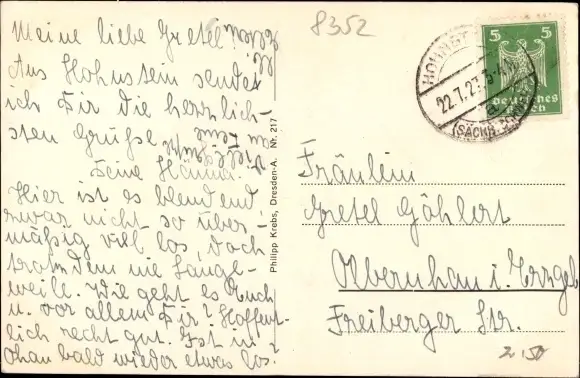 Meine liebe Gretel
Aus Hohnstein sendet
ich Dir die herzlich-
sten Grüße
Deine Hanna.
Hier ist es blendend
zwar nicht so über-
mäßig viel los, doch
trotzdem nie Lange-
weile. Wie geht es Euch
u. vor allem Dir? Hoffent-
lich recht gut. Ist in
Olhau bald wieder etwas los.
8352
5 5
Deutsches
Reich
22.7.27
(SÄCHS.
Philipp Krebs, Dresden-A. Nr. 217
Fräulein
Gretel Göhlert
Olbernhau i. Erzgeb
Freiberger Str.
2.50